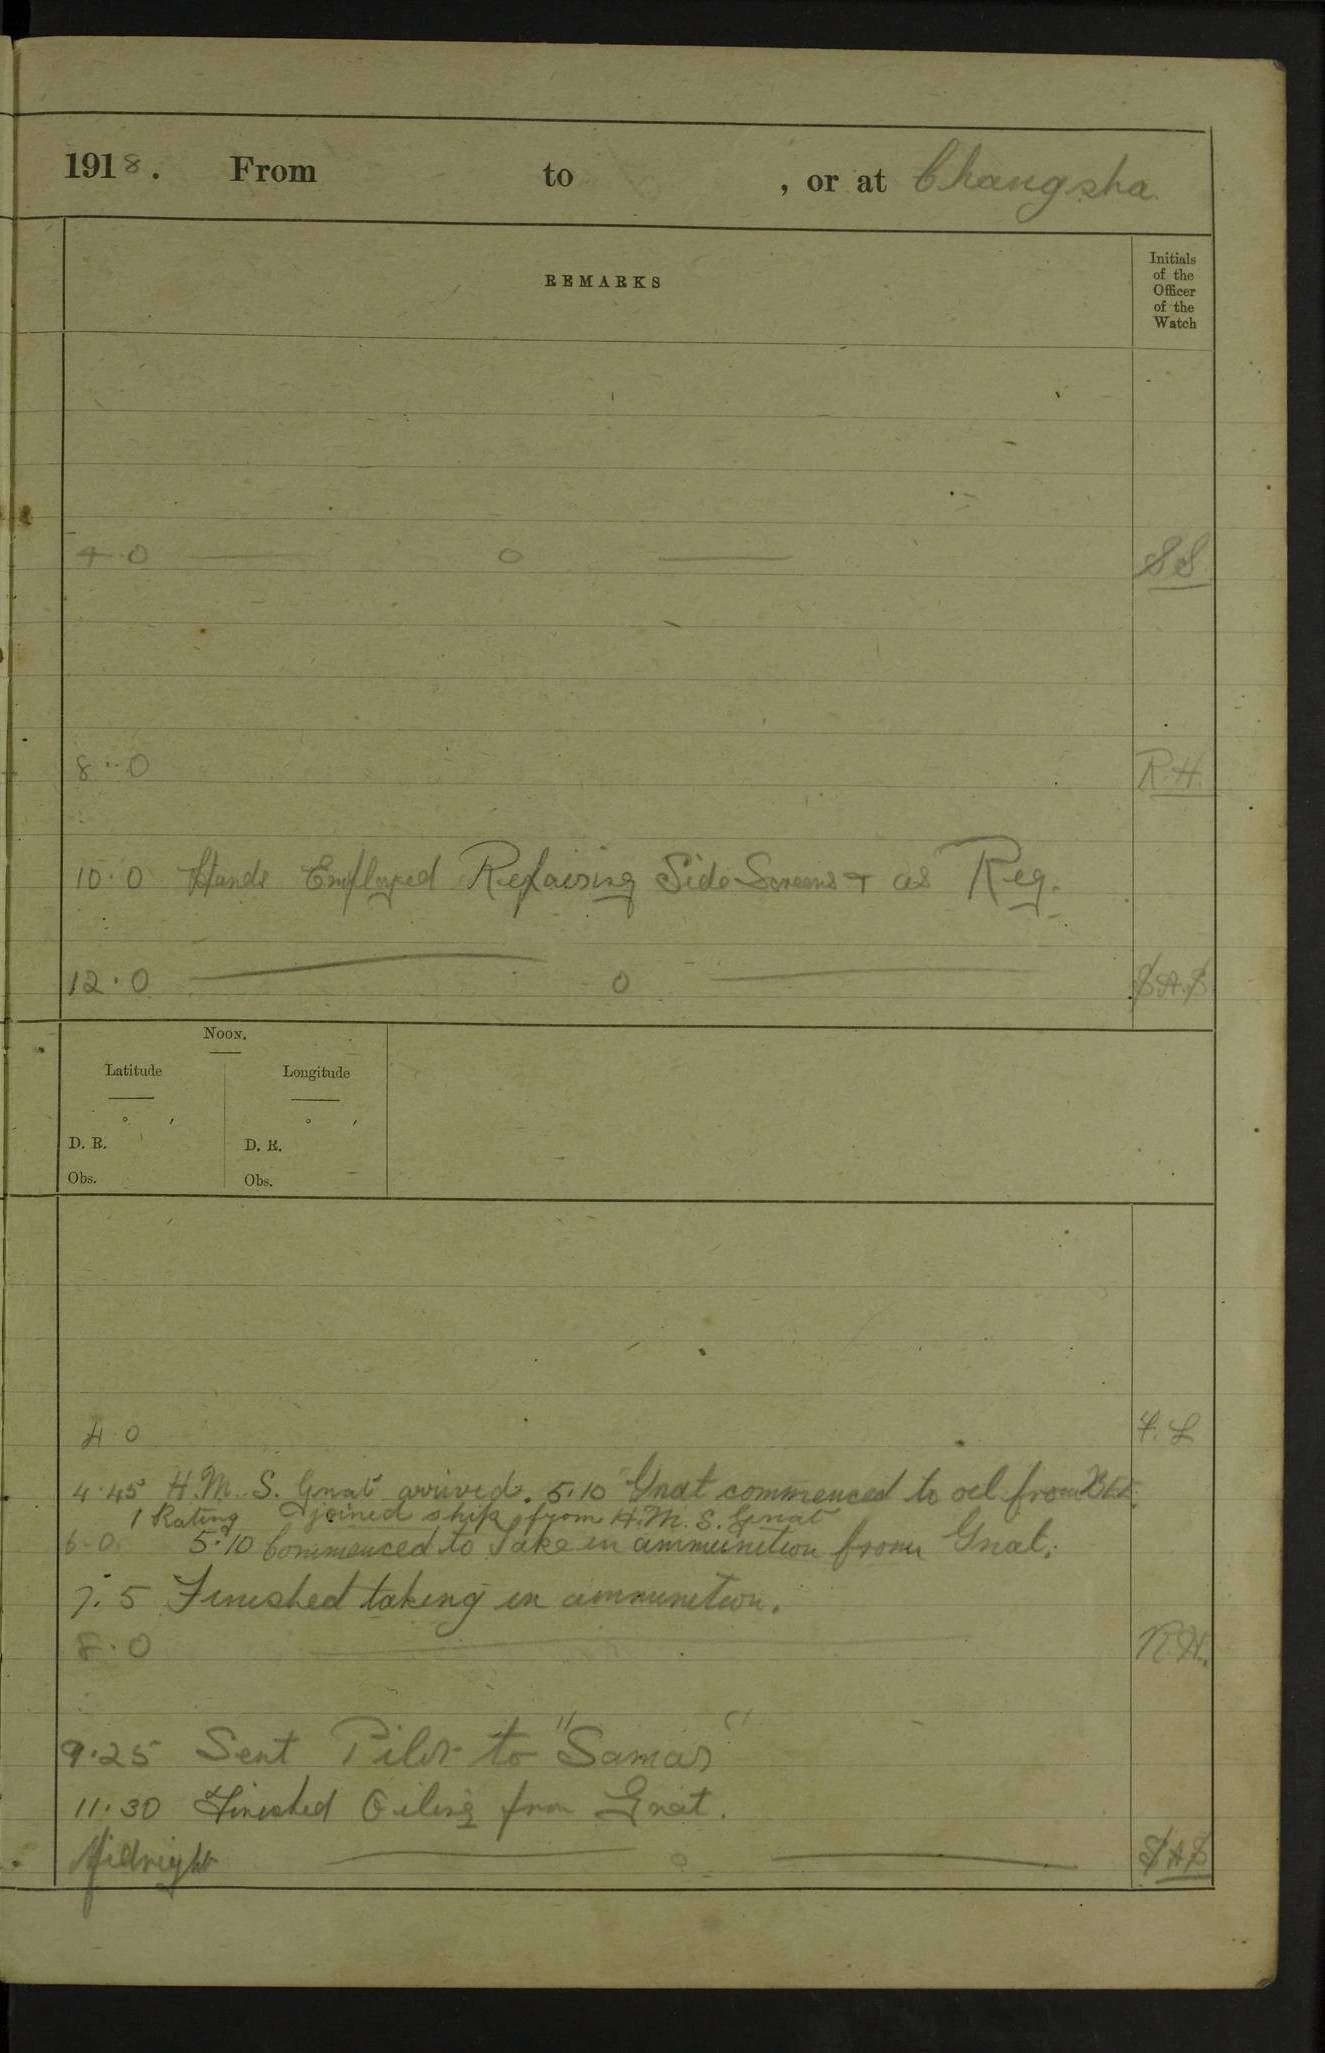 1918. From to , or at Changsha.
REMARKS
Initials
of the
Officer
of the
Watch
4.0 — 0 — SS
8.0 R.H.
10.0 Hands Employed Repairing Side Screens + as Req.
12.0 — 0 — S.A.S
NOON.
Latitude Longitude
° ′ ° ′
D. R. D. R.
Obs. Obs.
4.0 F.L
4.45 H.M.S. Gnat arrived. 5.10 Gnat commenced to oil from
1 Rating joined ship from H.M.S. Gnat
6.0. 5.10 Commenced to Take in ammunition from Gnat.
7.5 Finished taking in ammunition.
8.0 — R.H.
9.25 Sent Pilot to "Samar"
11.30 Finished Oiling from Gnat.
Midnight — 0 — SAS